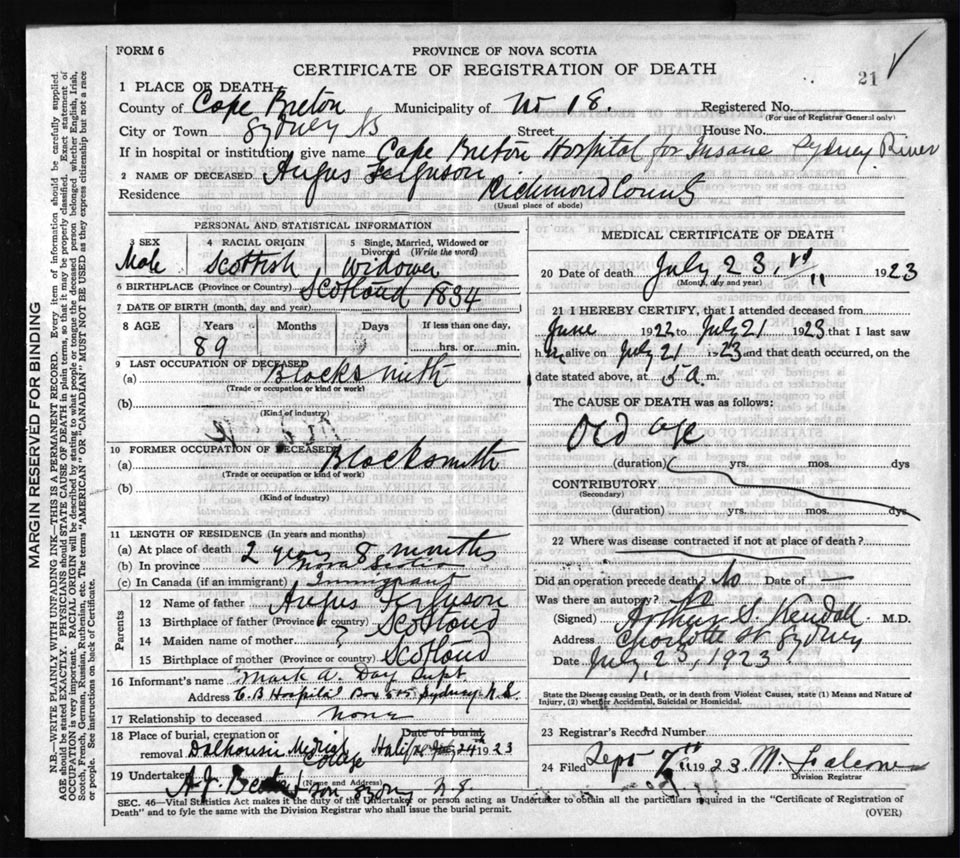 FORM 6
PROVINCE OF NOVA SCOTIA
CERTIFICATE OF REGISTRATION OF DEATH
21
1 PLACE OF DEATH
County of Cape Breton Municipality of No 18. Registered No.
(For use of Registrar General only)
City or Town Sydney NS Street House No.
If in hospital or institution, give name Cape Breton Hospital for Insane Sydney River
2 NAME OF DECEASED Angus Ferguson
Residence Richmond County
(Usual place of abode)
PERSONAL AND STATISTICAL INFORMATION
3 SEX 4 RACIAL ORIGIN 5 Single, Married, Widowed or Divorced (Write the word)
Male Scottish Widower
6 BIRTHPLACE (Province or Country) Scotland
7 DATE OF BIRTH (month, day and year) 1834
8 AGE Years Months Days If less than one day,
89 hrs. or min.
9 LAST OCCUPATION OF DECEASED
(a) Blacksmith
(Trade or occupation or kind or work)
(b)
(Kind of industry)
10 FORMER OCCUPATION OF DECEASED
(a) Blacksmith
(Trade or occupation or kind of work)
(b)
(Kind of industry)
11 LENGTH OF RESIDENCE (In years and months)
(a) At place of death 2 years 8 months
(b) In province Nova Scotia
(c) In Canada (if an immigrant) Immigrant
Parents
12 Name of father Angus Ferguson
13 Birthplace of father (Province or country) Scotland
14 Maiden name of mother ?
15 Birthplace of mother (Province or country) Scotland
16 Informant's name Mark A. Day Supt.
Address C.B Hospital Box 505 Sydney N.S.
17 Relationship to deceased none
18 Place of burial, cremation or Date of burial
removal Dalhousie Medical College Halifax July 24th 1923
19 Undertaker A.J. & Son Sydney N.S.
(Name and Address)
MEDICAL CERTIFICATE OF DEATH
20 Date of death July, 23, rd 1923
(Month, day and year)
21 I HEREBY CERTIFY, that I attended deceased from
June 1922 to July 21 1923 that I last saw
h alive on July 21 1923 and that death occurred, on the
date stated above, at 5 a. m.
The CAUSE OF DEATH was as follows:
Old age
(duration) yrs. mos. dys
CONTRIBUTORY
(Secondary)
(duration) yrs. mos. dys
22 Where was disease contracted if not at place of death?
Did an operation precede death? No Date of —
Was there an autopsy? No
(Signed) Arthur S. Kendall M.D.
Address Charlotte St Sydney
Date July, 23, 1923
State the Disease causing Death, or in death from Violent Causes, state (1) Means and Nature of
Injury, (2) whether Accidental, Suicidal or Homicidal.
23 Registrar's Record Number
24 Filed Sept 7th 1923 M.
Division Registrar
SEC. 46—Vital Statistics Act makes it the duty of the Undertaker or person acting as Undertaker to obtain all the particulars required in the "Certificate of Registration of
Death" and to fyle the same with the Division Registrar who shall issue the burial permit.
(OVER)
MARGIN RESERVED FOR BINDING
N.B.—WRITE PLAINLY WITH UNFADING INK—THIS IS A PERMANENT RECORD. Every item of information should be carefully supplied.
AGE should be stated EXACTLY. PHYSICIANS should STATE CAUSE OF DEATH in plain terms, so that it may be properly classified. Exact statement of
OCCUPATION is very important. RACIAL ORIGIN will be described by stating to what people or tongue the deceased person belonged whether English, Irish,
Scotch, French, German, Russian, Ruthenian, etc. The terms "AMERICAN" or "CANADIAN" MUST NOT BE USED as they express citizenship but not a race
or people. See instructions on back of Certificate.